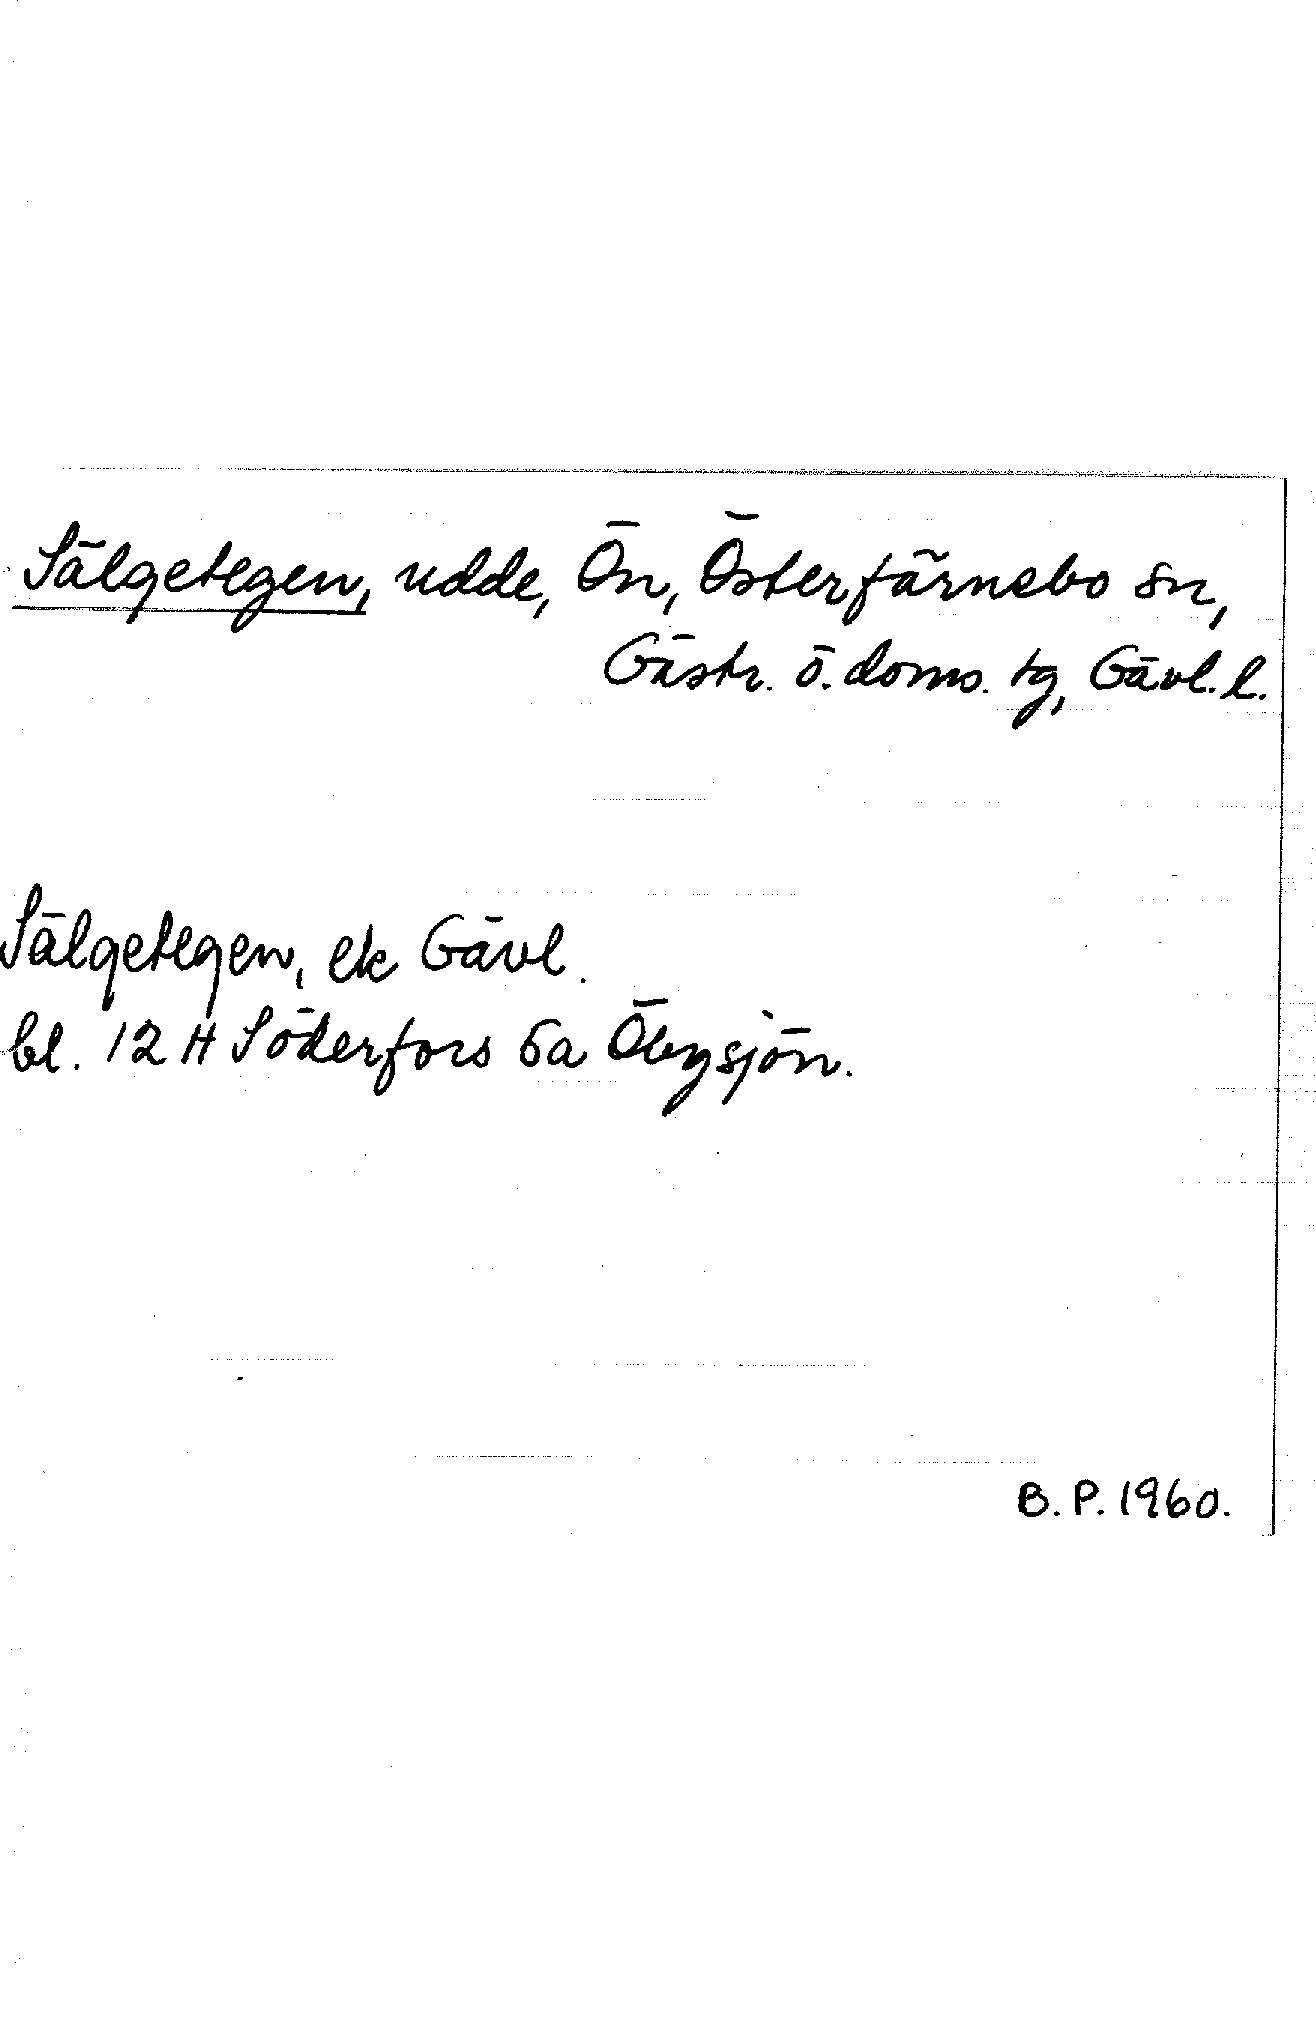 Sälgetegen, udde, Ön, Österfärnebo sn,
Gästr. ö. doms. tg, Gävl. l.
Sälgetegen, ek Gävl.
bl. 12 H Söderfors 5a Öbysjön.
B. P. 1960.